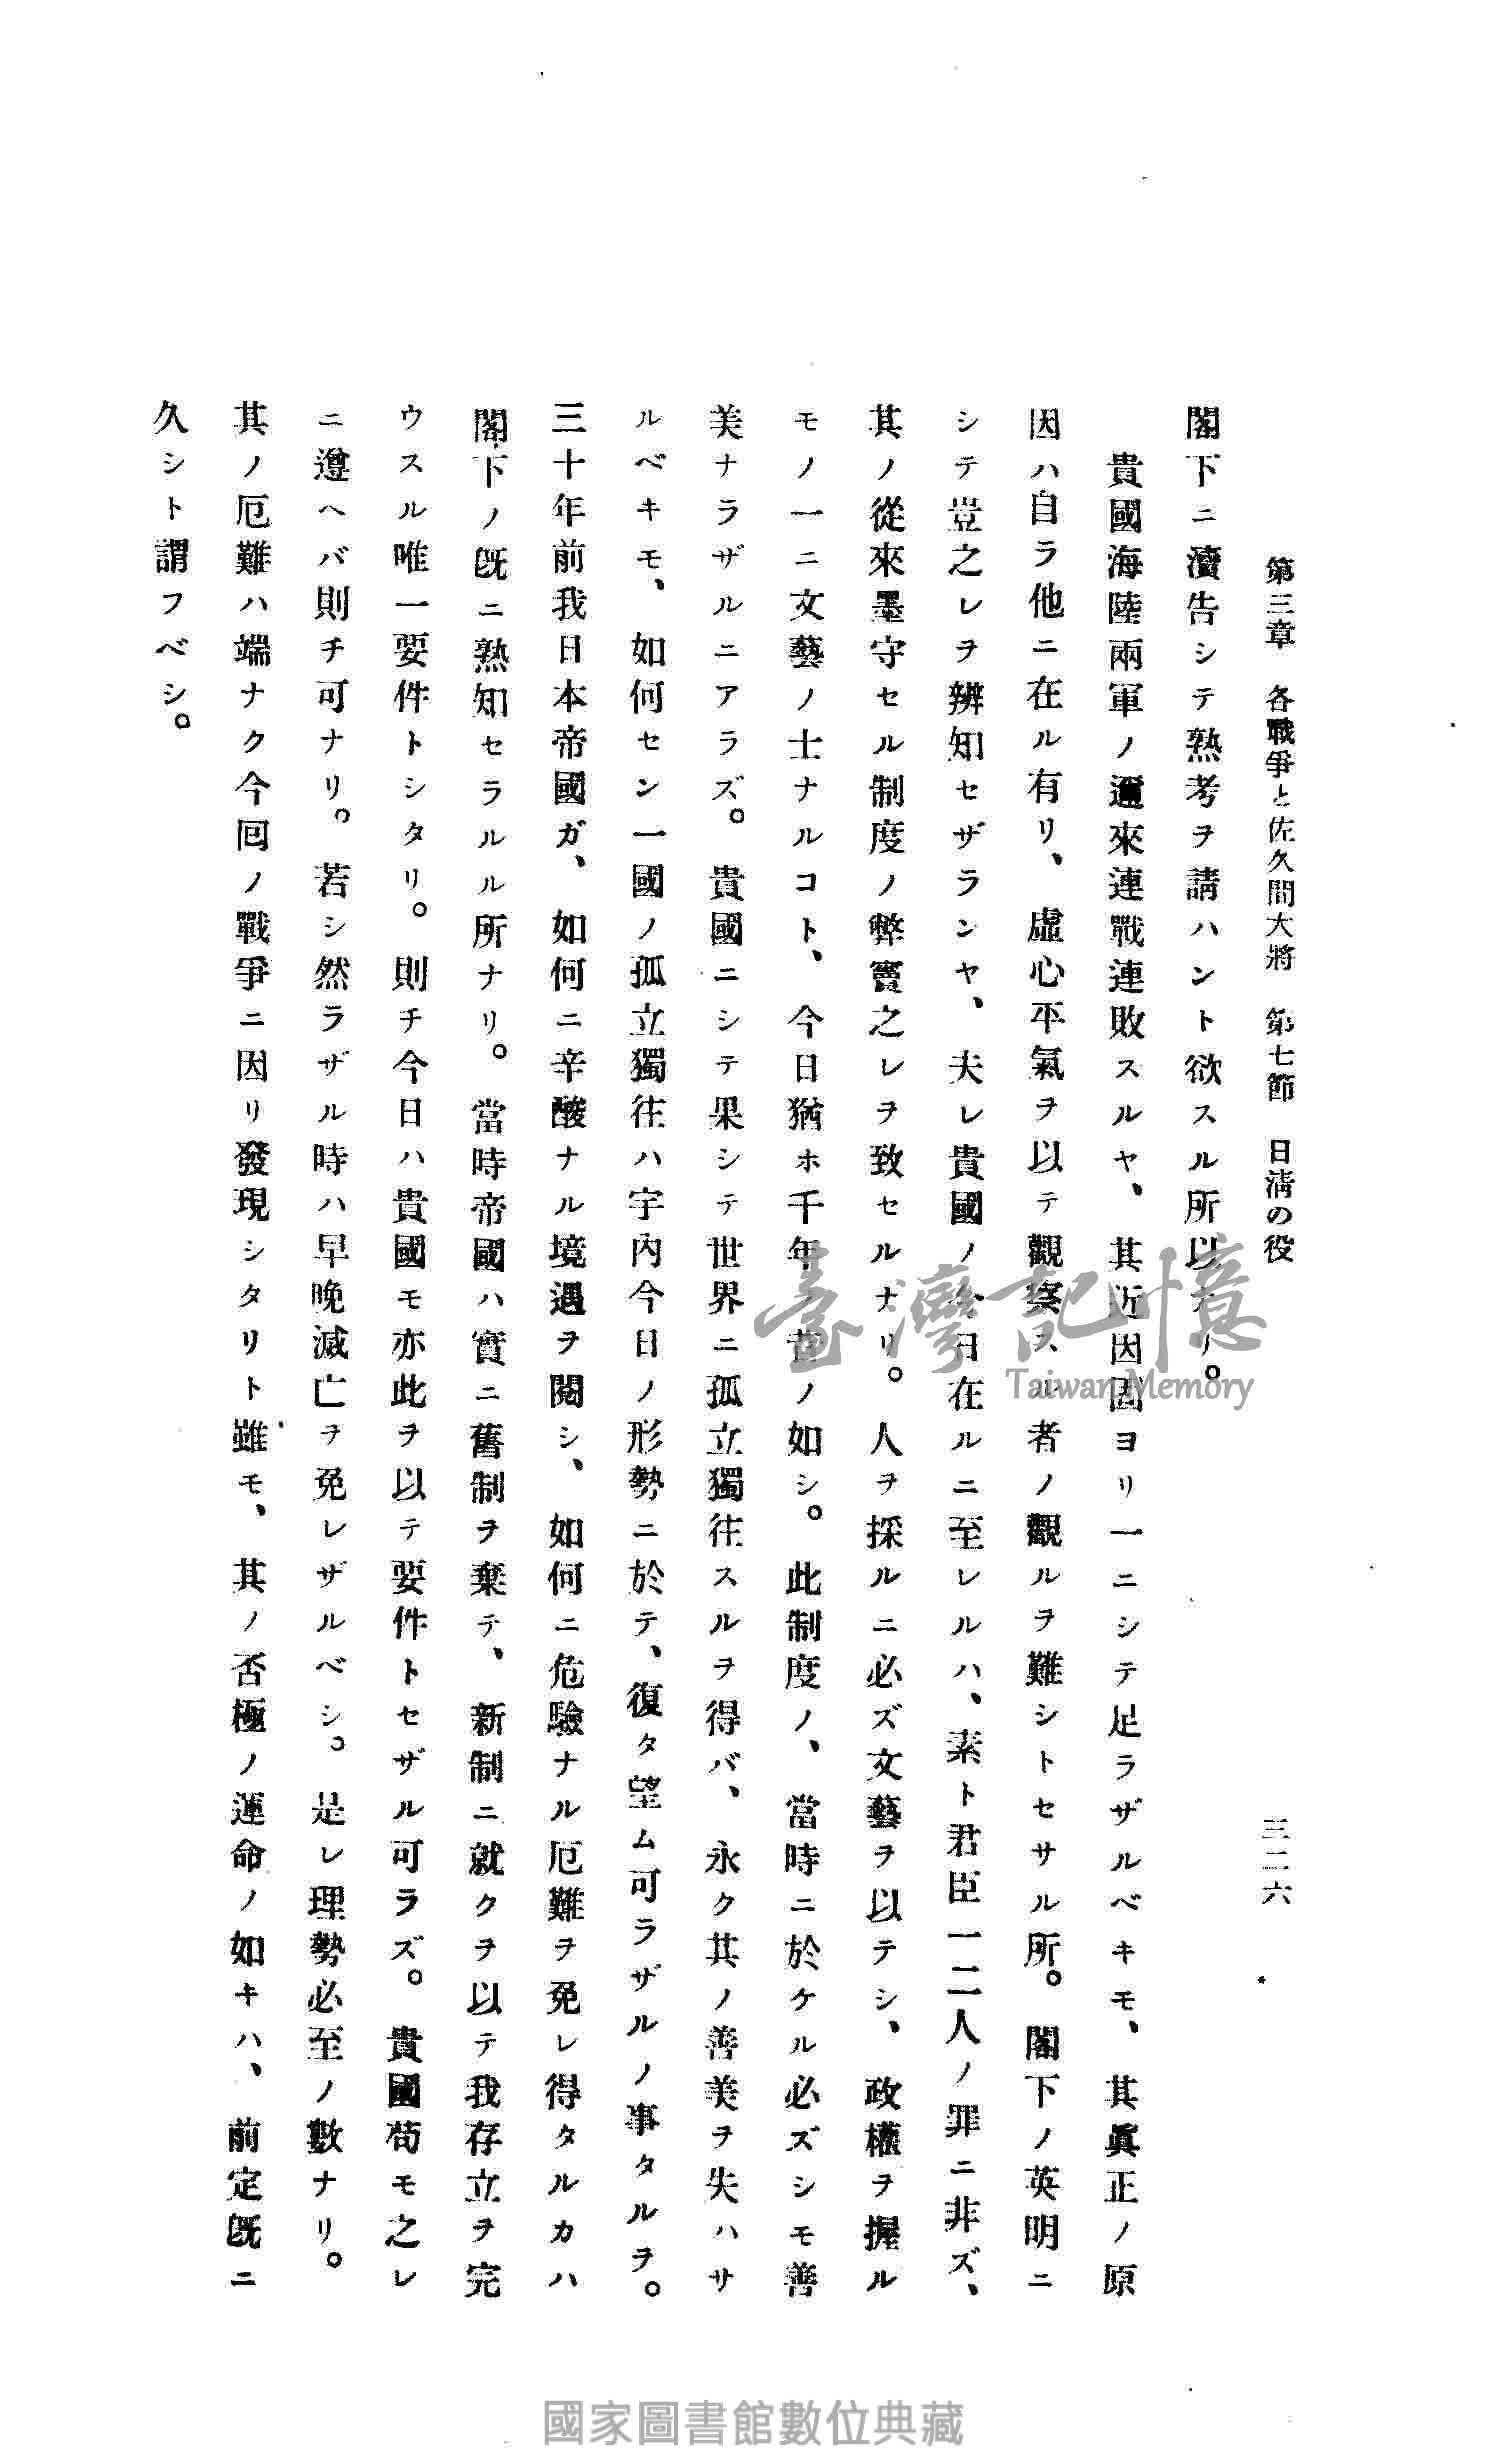 第三章 各戰爭と佐久間大將 第七節 日淸の役
三二六
閣下ニ瀆告シテ熟考ヲ請ハント欲スル所以ナリ。
貴國海陸兩軍ノ邇來連戰連敗スルヤ、其近因固ヨリ一ニシテ足ラザルベキモ、其眞正ノ原
因ハ自ラ他ニ在ル有リ、虛心平氣ヲ以テ觀察スル者ノ觀ルヲ難シトセサル所。閣下ノ英明ニ
シテ豈之レヲ辨知セザランヤ、夫レ貴國ノ今日在ルニ至レルハ、素ト君臣一二人ノ罪ニ非ズ、
其ノ從來墨守セル制度ノ弊竇之レヲ致セルナリ。人ヲ採ルニ必ズ文藝ヲ以テシ、政權ヲ握ル
モノ一ニ文藝ノ士ナルコト、今日猶ホ千年ノ昔ノ如シ。此制度ノ、當時ニ於ケル必ズシモ善
美ナラザルニアラズ。貴國ニシテ果シテ世界ニ孤立獨往スルヲ得バ、永ク其ノ善美ヲ失ハサ
ルベキモ、如何セン一國ノ孤立獨往ハ宇內今日ノ形勢ニ於テ、復タ望ム可ラザルノ事タルヲ。
三十年前我日本帝國ガ、如何ニ辛酸ナル境遇ヲ閱シ、如何ニ危驗ナル厄難ヲ免レ得タルカハ
閣下ノ旣ニ熟知セラルル所ナリ。當時帝國ハ實ニ舊制ヲ棄テ、新制ニ就クヲ以テ我存立ヲ完
ウスル唯一要件トシタリ。則チ今日ハ貴國モ亦此ヲ以テ要件トセザル可ラズ。貴國苟モ之レ
ニ遵ヘバ則チ可ナリ。若シ然ラザル時ハ早晚滅亡ヲ免レザルベシ。是レ理勢必至ノ數ナリ。
其ノ厄難ハ端ナク今回ノ戰爭ニ因リ發現シタリト雖モ、其ノ否極ノ運命ノ如キハ、前定旣ニ
久シト謂フベシ。
臺灣記憶
Taiwan Memory
國家圖書館數位典藏